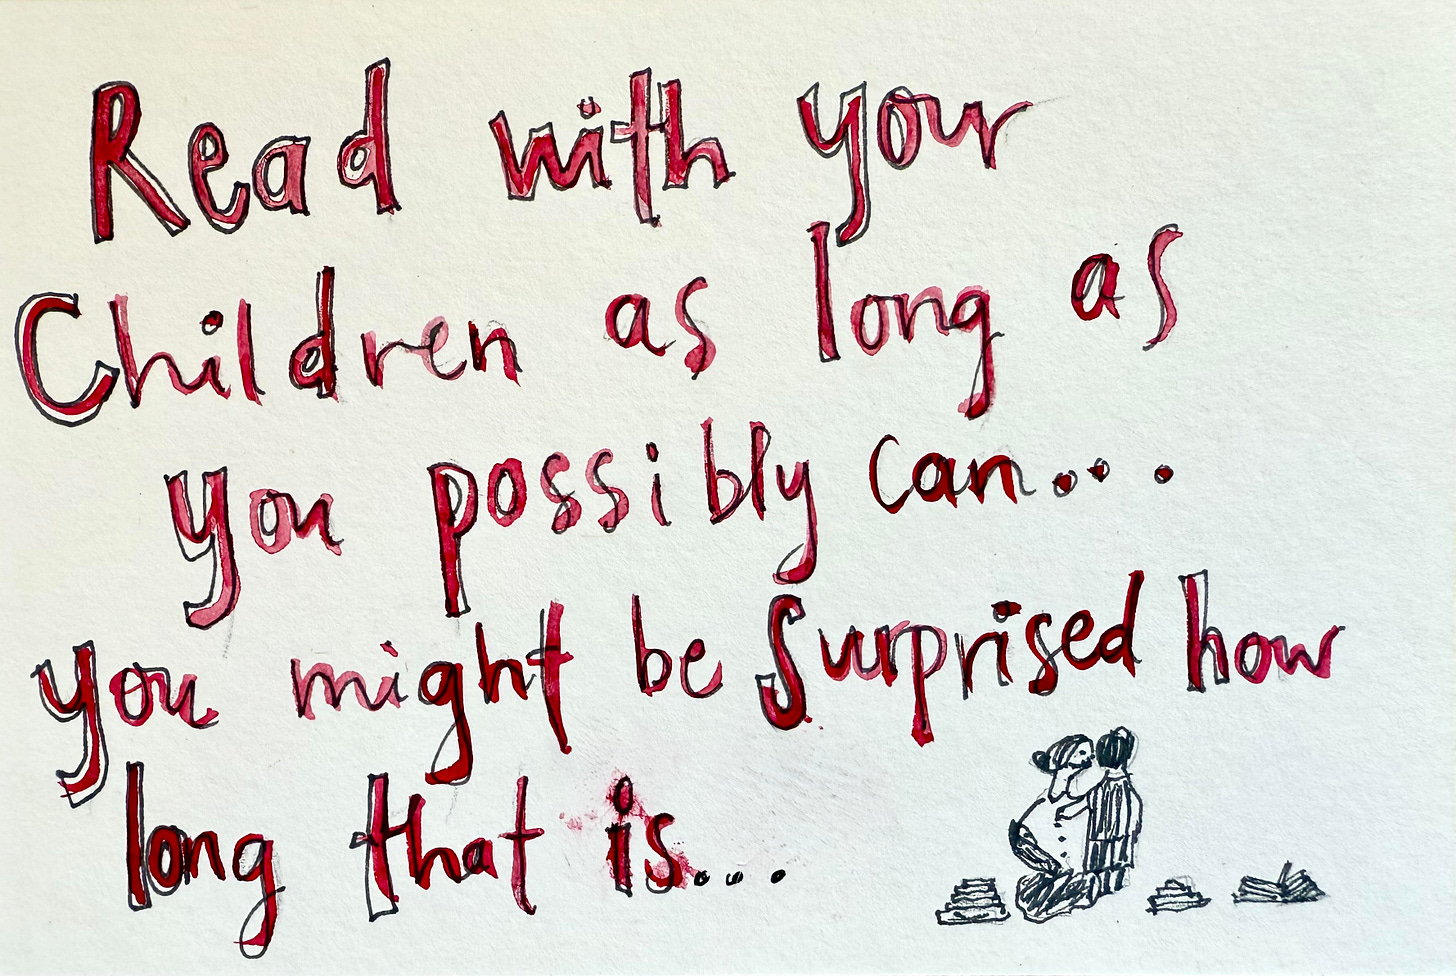 Read with your
Children as long as
you possibly can...
you might be Surprised how
long that is....